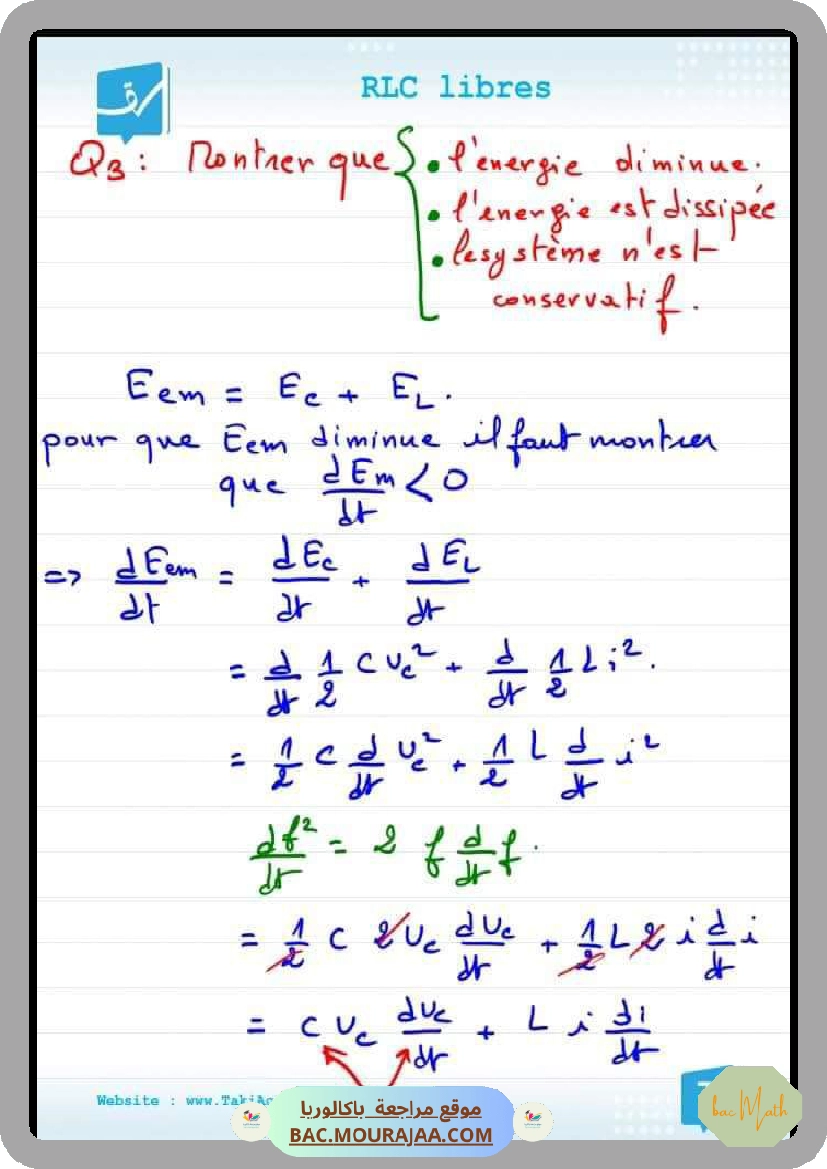 RLC libres
Q3 : Montrer que { • l'energie diminue.
• l'energie est dissipée
• le système n'est
conservatif.
Eem = Ec + EL.
pour que Eem diminue il faut montrer
que dEm/dt < 0
=> dEem/dt = dEc/dt + dEL/dt
= d/dt 1/2 C uc² + d/dt 1/2 L i².
= 1/2 C d/dt uc² + 1/2 L d/dt i²
df²/dt = 2 f d/dt f.
= 1/2 C 2 uc duc/dt + 1/2 L 2 i d/dt i
= C uc duc/dt + L i di/dt
Website : www.Taki
موقع مراجعة باكالوريا
BAC.MOURAJAA.COM
bac Math